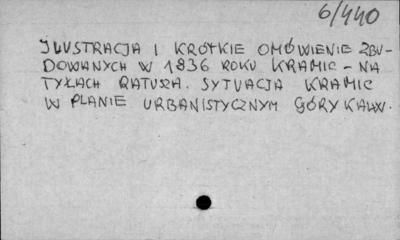 6/440
ILUSTRACJA I KRÓTKIE OMÓWIENIE ZBU-
DOWANYCH W 1836 ROKU KRAMIC - NA
TYŁACH RATUSZA. SYTUACJA KRAMIC
W PLANIE URBANISTYCZNYM GÓRY KALW.